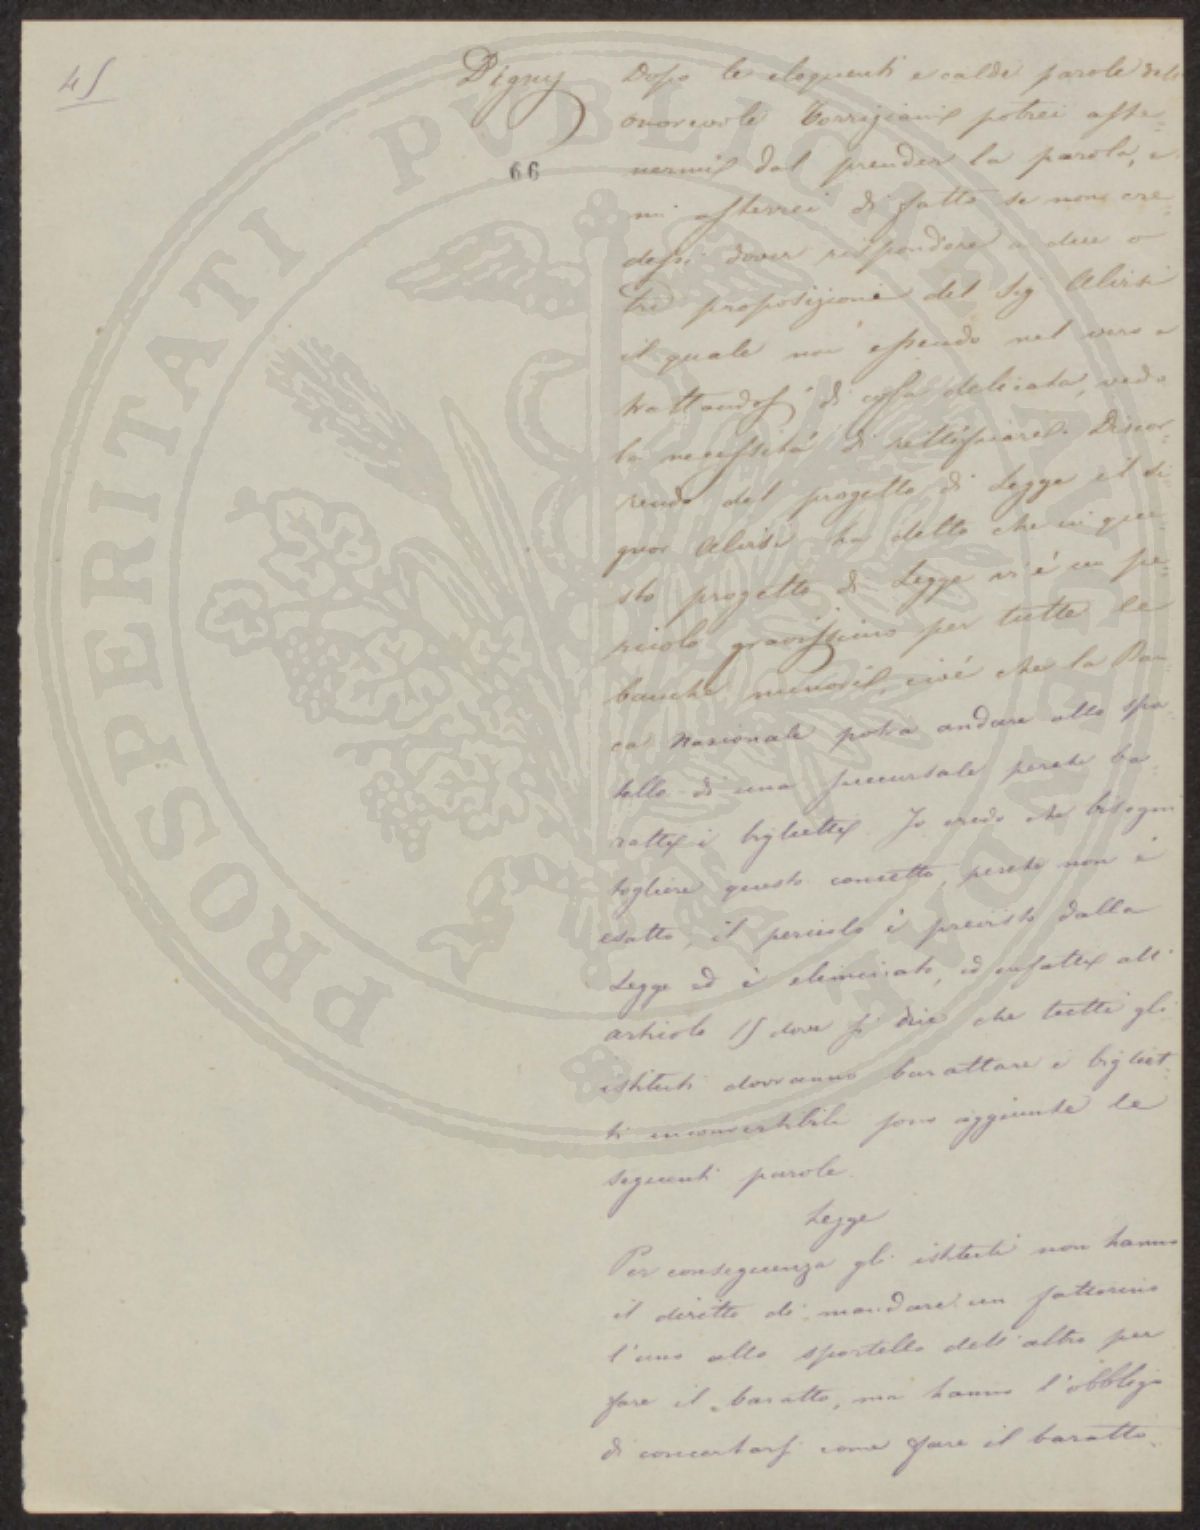 45
Digny
66
Dopo le eloquenti e calde parole dell
onorevole Torrigiani potrei aste=
nermi dal prender la parola, e
mi asterrei di fatto se non cre=
dessi dover rispondere a due o
tre proposizioni del Sig Alvisi
il quale non essendo nel vero e
trattandosi di cosa delicata, vedo
la necessità di rettificare. Discor=
rendo del progetto di Legge il Si=
gnor Alvisi ha detto che in que=
sto progetto di Legge vi è un pe=
ricolo gravissimo per tutte le
banche minori, cioè che la Ban=
ca Nazionale potrà andare allo spor=
tello di una succursale perchè ba=
ratti i biglietti. Io credo che bisogni
togliere questo concetto, perchè non è
esatto, il pericolo è previsto dalla
Legge ed è eliminato, ed infatti all'
articolo 15 dove si dice che tutti gli
istituti dovranno barattare i bigliet=
ti inconvertibili sono aggiunte le
seguenti parole.
Legge
Per conseguenza gli istituti non hanno
il diritto di mandare un fattorino
l'uno allo sportello dell'altro per
fare il baratto, ma hanno l'obbligo
di concertarsi come fare il baratto.
PROSPERITATI PVBLICAE